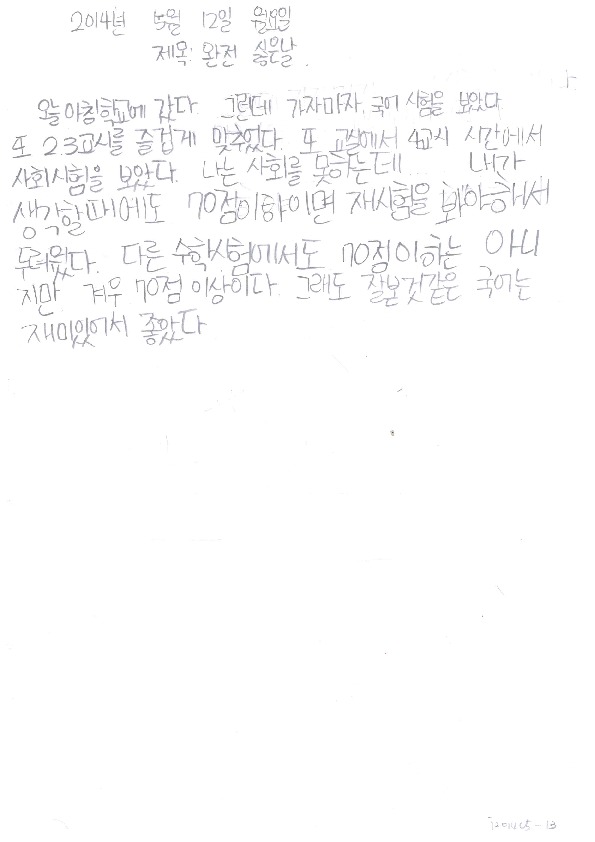 2014년 5월 12일 월요일
제목: 완전 싫은날
오늘 아침학교에 갔다. 그런데 가자마자 국어 시험을 보았다
또 2.3교시를 즐겁게 맞추었다. 또 교실에서 4교시 시간에서
사회시험을 보았다. 나는 사회를 못하는데 내가
생각할때에도 70점이하이면 재시험을 봐야해서
두려웠다. 다른 수학시험에서도 70점이하는 아니
지만 겨우 70점 이상이다. 그래도 잘본것같은 국어는
재미있어서 좋았다